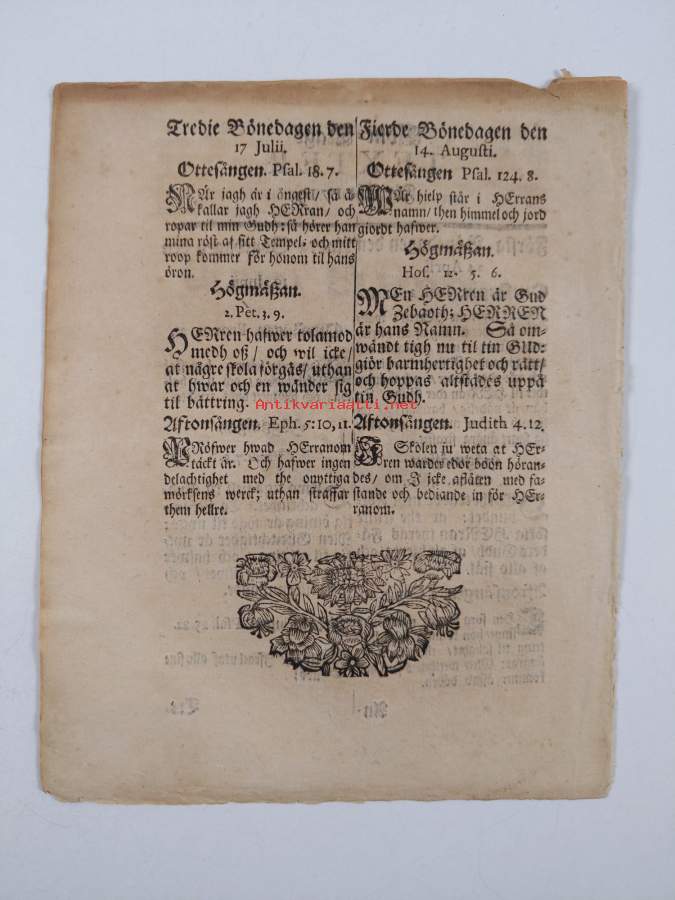 Tredie Bönedagen den
17 Julii.
Ottesången. Psal. 18. 7.
NÅr jagh är i ångest/ så å-
kallar jagh HERran/ och
ropar til min Gudh: så hörer han
mina röst af sitt Tempel, och mitt
roop kommer för honom til hans
öron.
Högmäßan.
2. Pet. 3. 9.
HERren hafwer tolamod
medh oß/ och wil icke/
at någre skola förgås/ uthan
at hwar och en wänder sig
til bättring.
Aftonsången. Eph. 5: 10, 11.
PRöfwer hwad HErranom
täckt är. Och hafwer ingen
delachtighet med the onyttiga
mörksens werck; uthan straffar
them hellre.
Fierde Bönedagen den
14. Augusti.
Ottesången Psal. 124. 8.
WÅr hielp står i HErrans
namn/ then himmel och jord
giordt hafwer.
Högmäßan.
Hos. 12. 5. 6.
MEn HERren är Gud
Zebaoth; HERREN
är hans Namn. Så om-
wändt tigh nu til tin GUd:
giör barmhertighet och rätt/
och hoppas altstädes uppå
tin Gudh.
Aftonsången. Judith 4. 12.
I Skolen ju weta at HEr-
ren warder edor böön höran-
des/ om I icke aflåten med fa-
stande och bediande in för HEr-
ranom.
Antikvariaatti.net